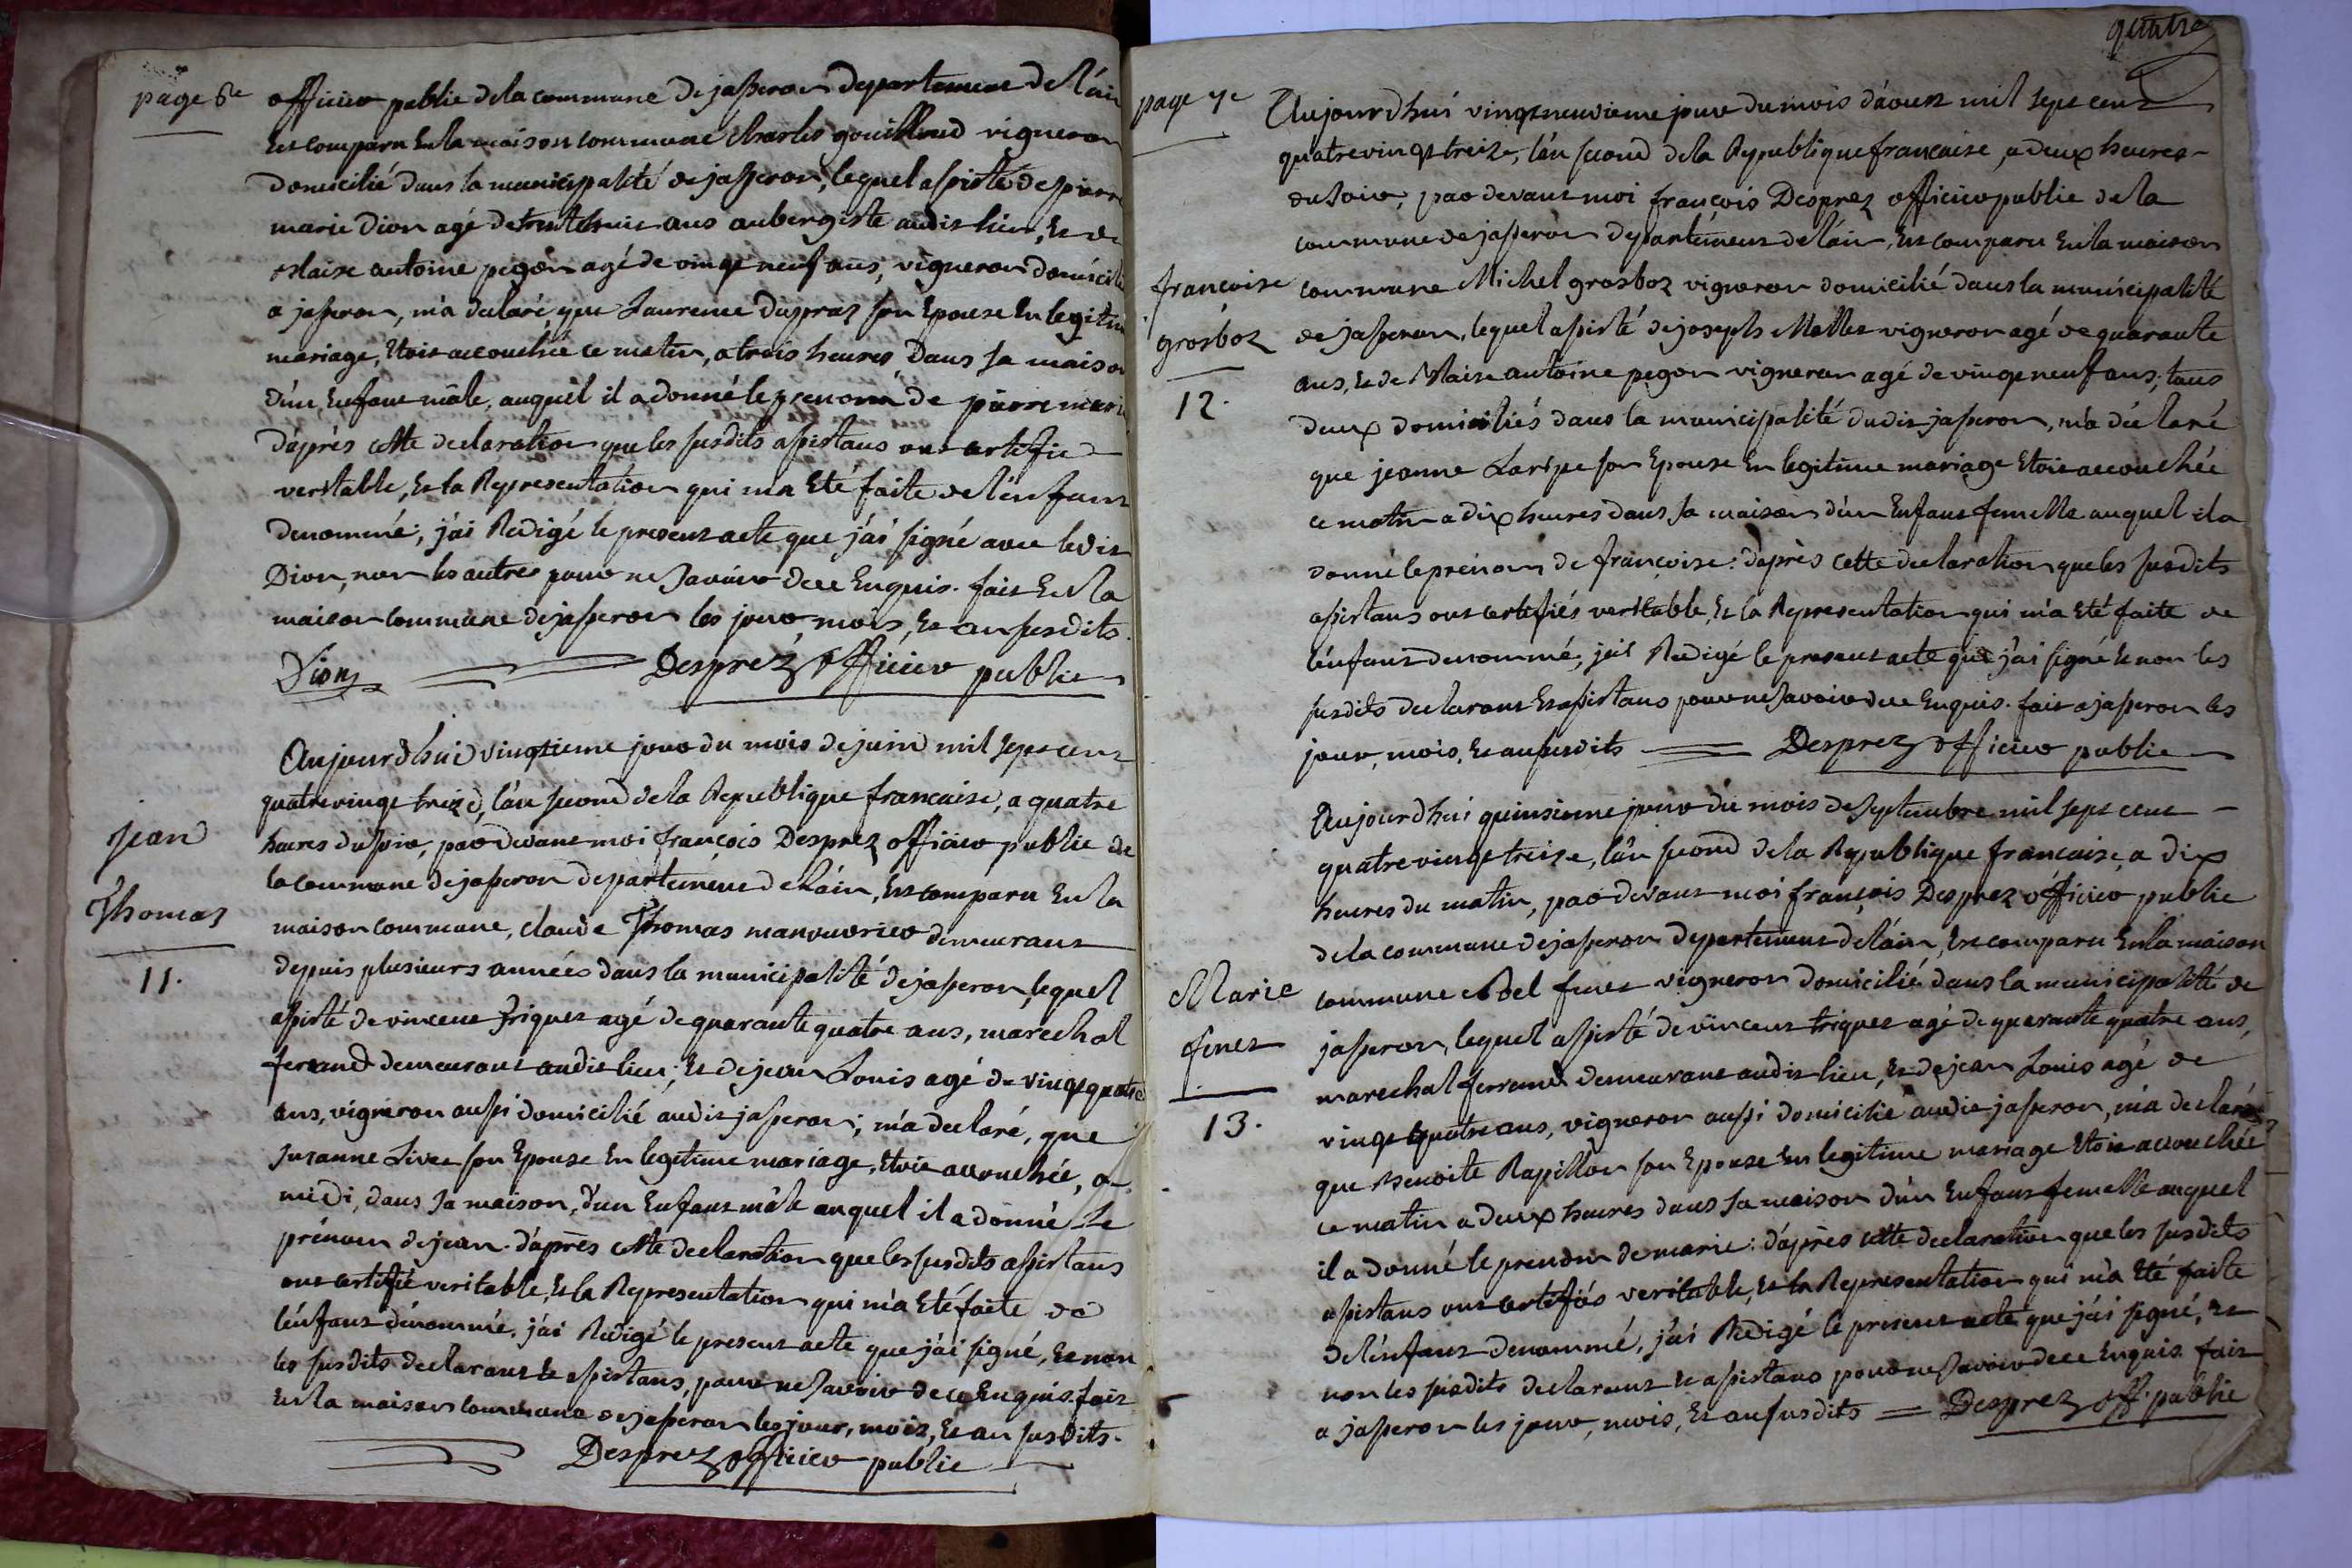 page 6e
officier public de la commune de jasseron departement de l'ain
est comparu En la maison commune Charles gouilloud vigneron
domicilié dans la municipalité de jasseron, lequel assisté de pierre
marie Dion agé de trente huit ans aubergiste audit lieu, Et de
Blaise antoine pegon agé de vingt neuf ans, vigneron domicilié
a jasseron, m'a declaré que Laurence Dupraz son Epouse En legitime
mariage, Etoit accouchée ce matin, a trois heures, Dans sa maison
d'un Enfant mâle, auquel il a donné le prenom de pierre marie
d'après cette declaration que les susdits assistans ont certifié
veritable, Et la Representation qui m'a Eté faite de l'enfant
denommé; j'ai Redigé le present acte que j'ai signé avec ledit
Dion, non les autres pour ne savoir de ce Enquis. fait En la
maison commune de jasseron les jour, mois, Et an susdits.
Dion Desprez officier public
Aujourd'hui vingtieme jour du mois de juin mil sept cent
quatre vingt treize, l'an second de la Republique francaise, a quatre
heures du soir, par devant moi françois Desprez officier public de
la commune de jasseron departement de l'ain, Est comparu En la
maison commune, claude Thomas manouvrier demeurant
depuis plusieurs années dans la municipalité de jasseron, lequel
assisté de vincent triquet agé de quarante quatre ans, maréchal
ferrand demeurant audit lieu; Et de jean Louis agé de vingt quatre
ans, vigneron aussi domicilié audit jasseron; m'a declaré, que
Susanne Livet son Epouse En legitime mariage, Etoit accouchée, a
midi, dans sa maison, d'un Enfant mâle auquel il a donné le
prénom de jean. d'après cette declaration que les susdits assistans
ont certifié veritable, Et la Representation qui m'a Eté faite de
l'enfant dénommé, j'ai Redigé le present acte que j'ai signé, Et non
les susdits declarant Et assistans, pour ne savoir de ce Enquis. fait
En la maison commune de jasseron les jour, mois, Et an susdits.
Desprez officier public
jean
Thomas
11.
quatre
page 7e
Aujourd'hui vingt neuvieme jour du mois d'aoust mil sept cent
quatre vingt treize, l'an second de la Republique francaise, a deux heures
du soir, par devant moi françois Desprez officier public de la
commune de jasseron departement de l'ain, Est comparu En la maison
commune Michel grosboz vigneron domicilié dans la municipalité
de jasseron, lequel assisté de joseph Mollet vigneron agé de quarante
ans, Et de Blaise antoine pegon vigneron agé de vingt neuf ans; tous
deux domiciliés dans la municipalité dudit jasseron, m'a déclaré
que jeanne son Epouse En legitime mariage Etoit accouchée
ce matin a dix heures dans sa maison d'un Enfant femelle auquel il a
donné le prénom de françoise: d'après cette declaration que les susdits
assistans ont certifiés veritable, Et la Representation qui m'a Eté faite de
l'enfant denommé, j'ai Redigé le present acte que j'ai signé Et non les
susdits declarant Et assistans pour ne savoir de ce Enquis. fait a jasseron les
jour, mois, Et an susdits Desprez officier public
françoise
grosboz
12.
Aujourd'hui quinsieme jour du mois de Septembre mil sept cent
quatre vingt treize, l'an second de la Republique francaise, a dix
heures du matin, par devant moi françois Desprez officier public
de la commune de jasseron departement de l'ain, Est comparu En la maison
commune Abel finet vigneron domicilié dans la municipalité de
jasseron, lequel assisté de vincent triquet agé de quarante quatre ans,
marechal ferrand demeurant audit lieu, Et de jean Louis agé de
vingt quatre ans, vigneron aussi domicilié audit jasseron, m'a declaré
que Benoite Rapillon son Epouse En legitime mariage Etoit accouchée
ce matin a deux heures dans sa maison d'un Enfant femelle auquel
il a donné le prenom de marie: d'après cette declaration que les susdits
assistans ont certifiés veritable, Et la Representation qui m'a Eté faite
de l'enfant denommé, j'ai Redigé le present acte que j'ai signé, Et
non les susdits declarant Et assistans pour ne savoir de ce Enquis. fait
a jasseron les jour, mois, Et an susdits Desprez off. public
Marie
finet
13.